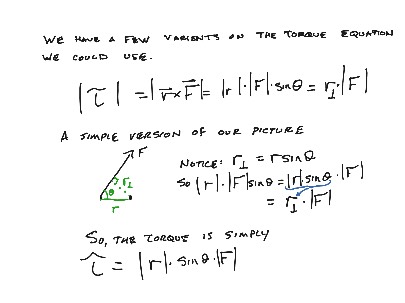 WE HAVE A FEW VARIENTS ON THE TORQUE EQUATION
WE COULD USE.
|τ| = |r⃗ × F⃗| = |r|·|F|·sinθ = r⊥·|F|
A SIMPLE VERSION OF OUR PICTURE
F
r⊥
θ
r
NOTICE: r⊥ = r sinθ
SO |r|·|F| sinθ = |r|·sinθ·|F|
= r⊥·|F|
SO, THE TORQUE IS SIMPLY
τ = |r|·sinθ·|F|